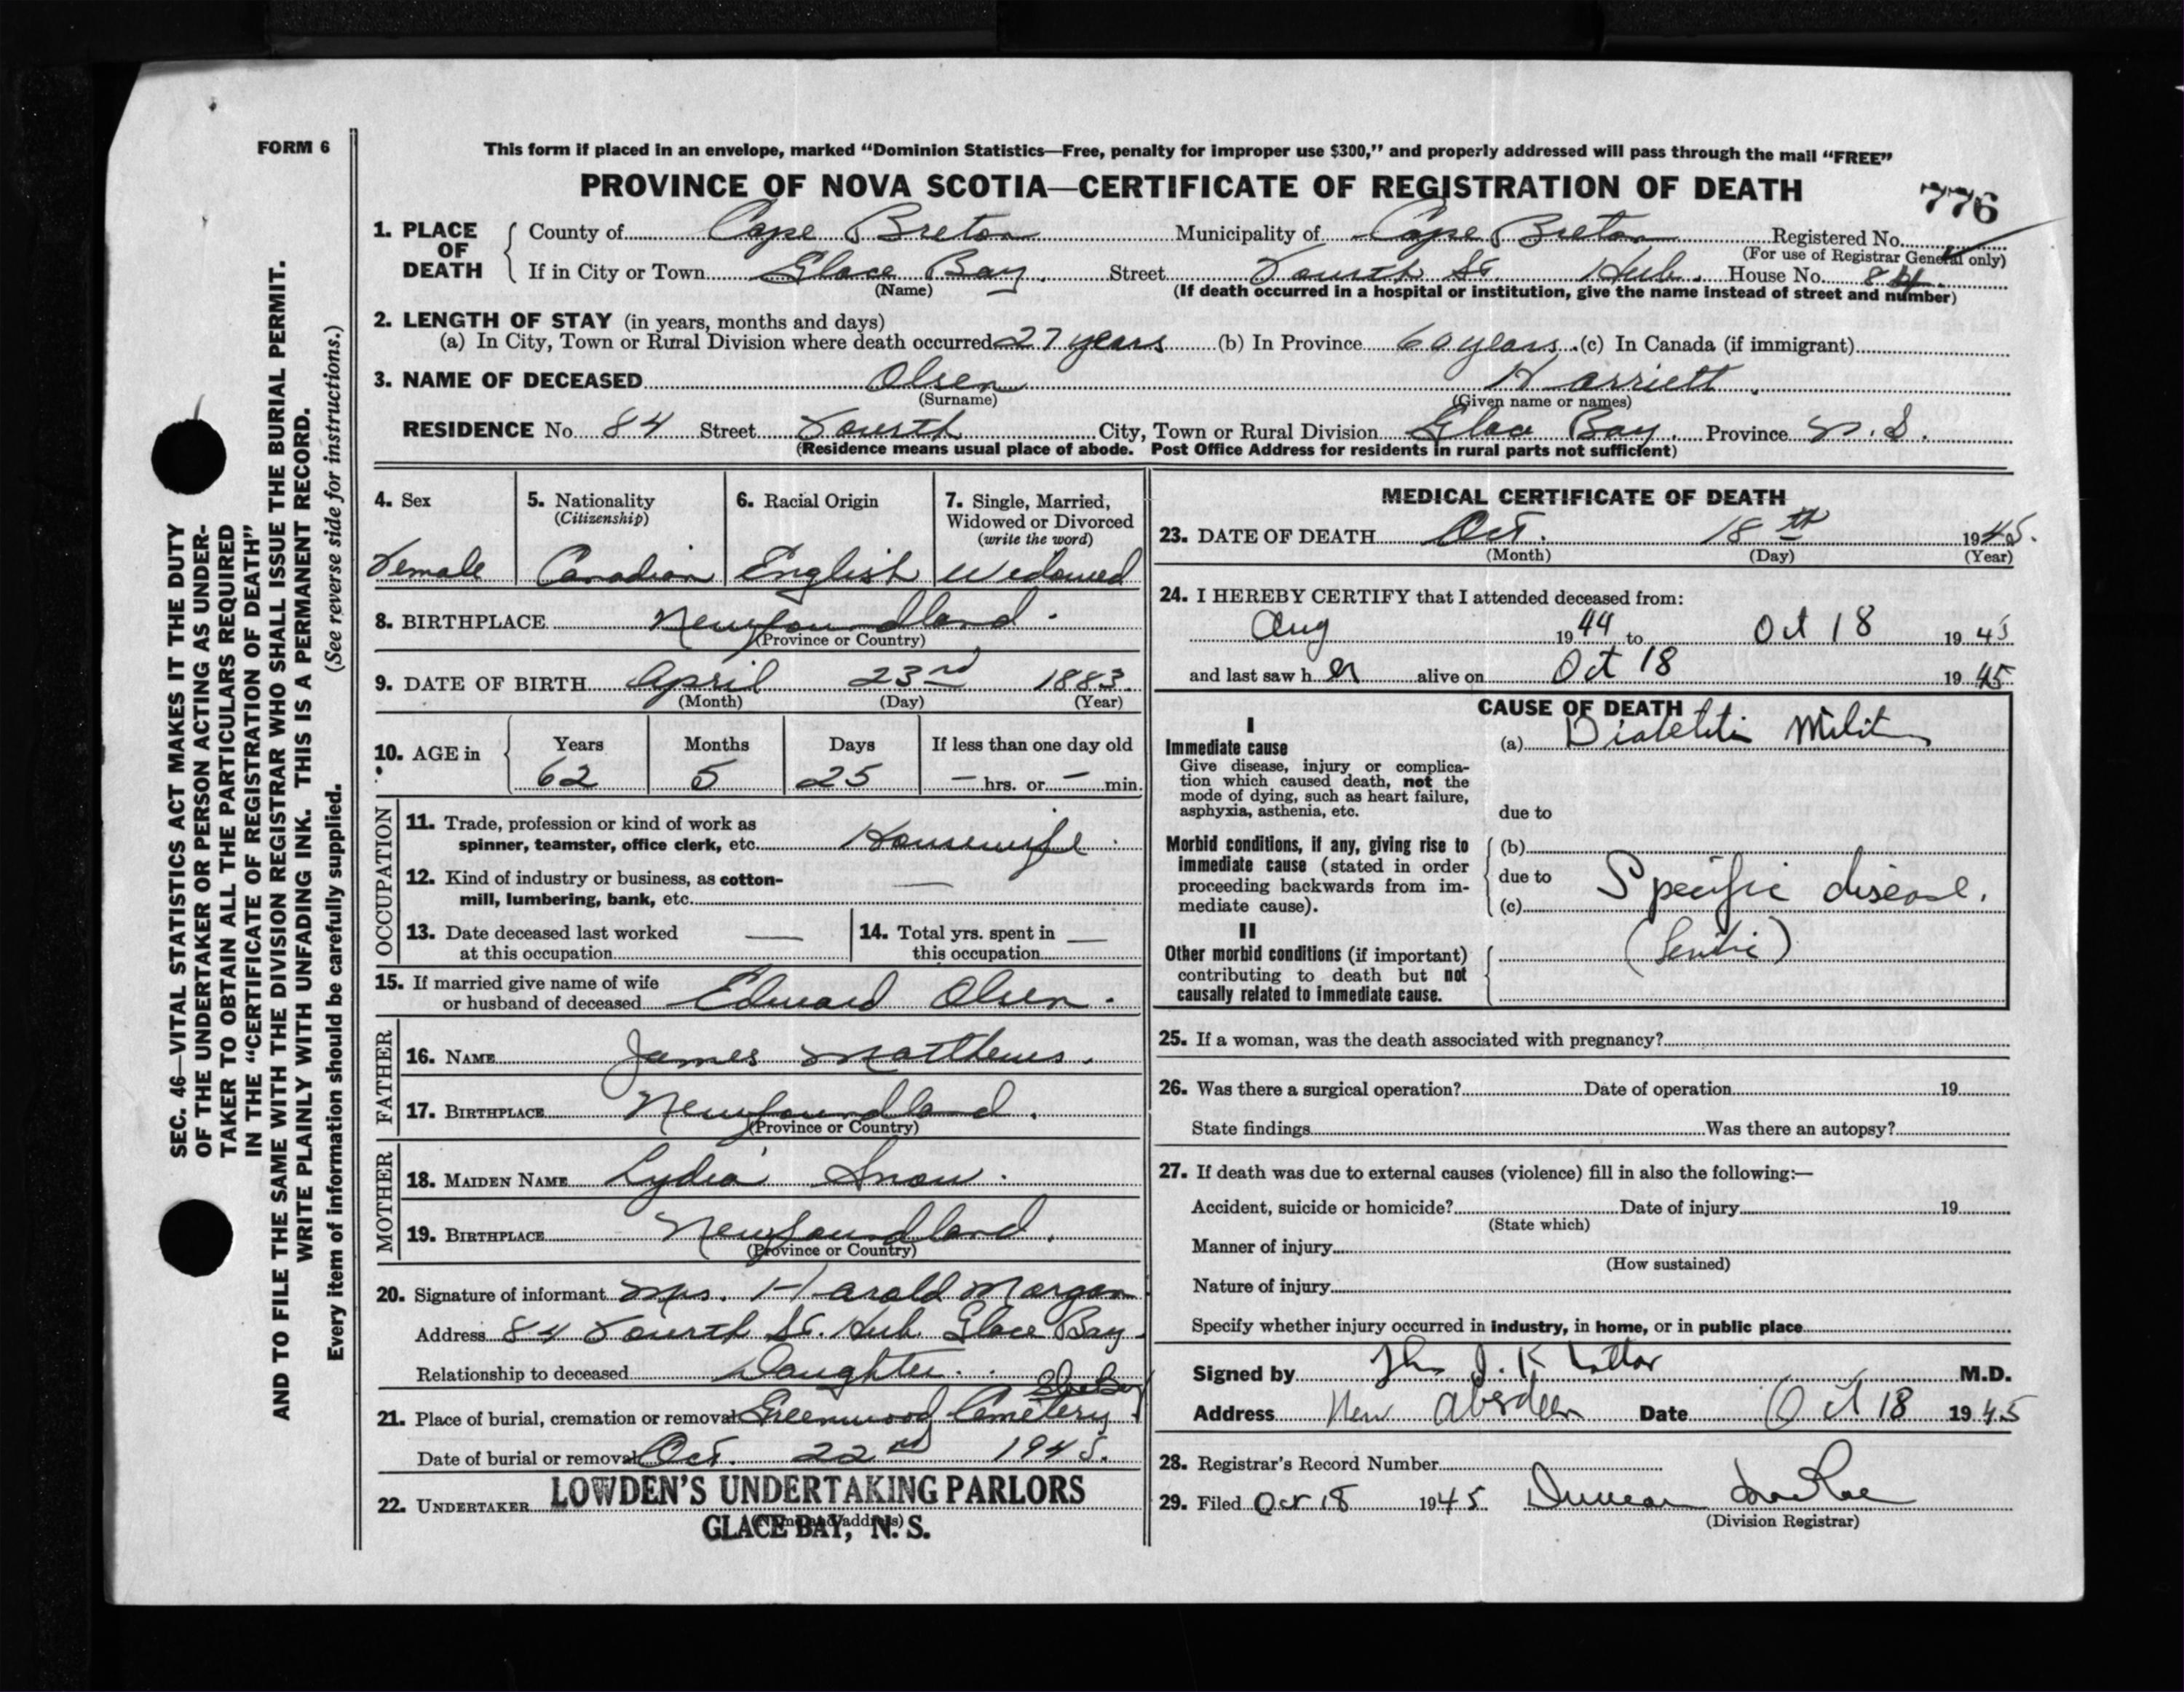 FORM 6
This form if placed in an envelope, marked "Dominion Statistics—Free, penalty for improper use $300," and properly addressed will pass through the mail "FREE"
PROVINCE OF NOVA SCOTIA—CERTIFICATE OF REGISTRATION OF DEATH
776
1. PLACE OF DEATH
County of Cape Breton Municipality of Cape Breton Registered No.
(For use of Registrar General only)
If in City or Town Glace Bay. Street Fourth St Hub. House No. 84.
(Name) (If death occurred in a hospital or institution, give the name instead of street and number)
2. LENGTH OF STAY (in years, months and days)
(a) In City, Town or Rural Division where death occurred 27 years (b) In Province 60 years. (c) In Canada (if immigrant)
3. NAME OF DECEASED Olsen Harriett
(Surname) (Given name or names)
RESIDENCE No. 84 Street Fourth City, Town or Rural Division Glace Bay. Province N.S.
(Residence means usual place of abode. Post Office Address for residents in rural parts not sufficient)
4. Sex
Female
5. Nationality
(Citizenship)
Canadian
6. Racial Origin
English
7. Single, Married,
Widowed or Divorced
(write the word)
Widowed
8. BIRTHPLACE Newfoundland.
(Province or Country)
9. DATE OF BIRTH April 23rd 1883.
(Month) (Day) (Year)
10. AGE in
Years Months Days If less than one day old
62 5 25 — hrs. or — min.
OCCUPATION
11. Trade, profession or kind of work as
spinner, teamster, office clerk, etc. Housewife.
12. Kind of industry or business, as cotton-
mill, lumbering, bank, etc. —
13. Date deceased last worked
at this occupation —
14. Total yrs. spent in
this occupation —
15. If married give name of wife
or husband of deceased Edward Olsen.
FATHER
16. NAME James Matthews.
17. BIRTHPLACE Newfoundland.
(Province or Country)
MOTHER
18. MAIDEN NAME Lydia Snow.
19. BIRTHPLACE Newfoundland.
(Province or Country)
20. Signature of informant Mrs. Harold Morgan
Address 84 Fourth St. Hub Glace Bay.
Relationship to deceased Daughter.
21. Place of burial, cremation or removal Greenwood Cemetery
Date of burial or removal Oct. 22nd 1945.
22. UNDERTAKER LOWDEN'S UNDERTAKING PARLORS
(Name and address)
GLACE BAY, N. S.
MEDICAL CERTIFICATE OF DEATH
23. DATE OF DEATH Oct. 18th 1945.
(Month) (Day) (Year)
24. I HEREBY CERTIFY that I attended deceased from:
Aug 1944 to Oct 18 1945
and last saw her alive on Oct 18 1945
CAUSE OF DEATH
I
Immediate cause
Give disease, injury or complica-
tion which caused death, not the
mode of dying, such as heart failure,
asphyxia, asthenia, etc.
(a) Diabetitis Militus
due to
Morbid conditions, if any, giving rise to
immediate cause (stated in order
proceeding backwards from im-
mediate cause).
(b)
due to
(c) Specific disease.
II
Other morbid conditions (if important)
contributing to death but not
causally related to immediate cause.
25. If a woman, was the death associated with pregnancy?
26. Was there a surgical operation? Date of operation 19
State findings Was there an autopsy?
27. If death was due to external causes (violence) fill in also the following:—
Accident, suicide or homicide? Date of injury 19
(State which)
Manner of injury
(How sustained)
Nature of injury
Specify whether injury occurred in industry, in home, or in public place
Signed by M.D.
Address New Aberdeen Date Oct 18 1945
28. Registrar's Record Number
29. Filed Oct 18 1945 Duncan
(Division Registrar)
SEC. 46—VITAL STATISTICS ACT MAKES IT THE DUTY
OF THE UNDERTAKER OR PERSON ACTING AS UNDER-
TAKER TO OBTAIN ALL THE PARTICULARS REQUIRED
IN THE "CERTIFICATE OF REGISTRATION OF DEATH"
AND TO FILE THE SAME WITH THE DIVISION REGISTRAR WHO SHALL ISSUE THE BURIAL PERMIT.
WRITE PLAINLY WITH UNFADING INK. THIS IS A PERMANENT RECORD.
Every item of information should be carefully supplied. (See reverse side for instructions.)